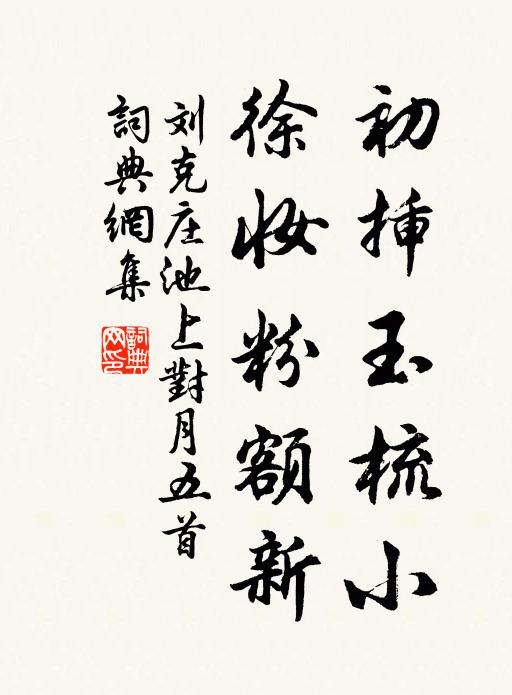 初插玉梳小
徐妆粉额新
刘克庄池上對月五首
詞典網集
詞典网印